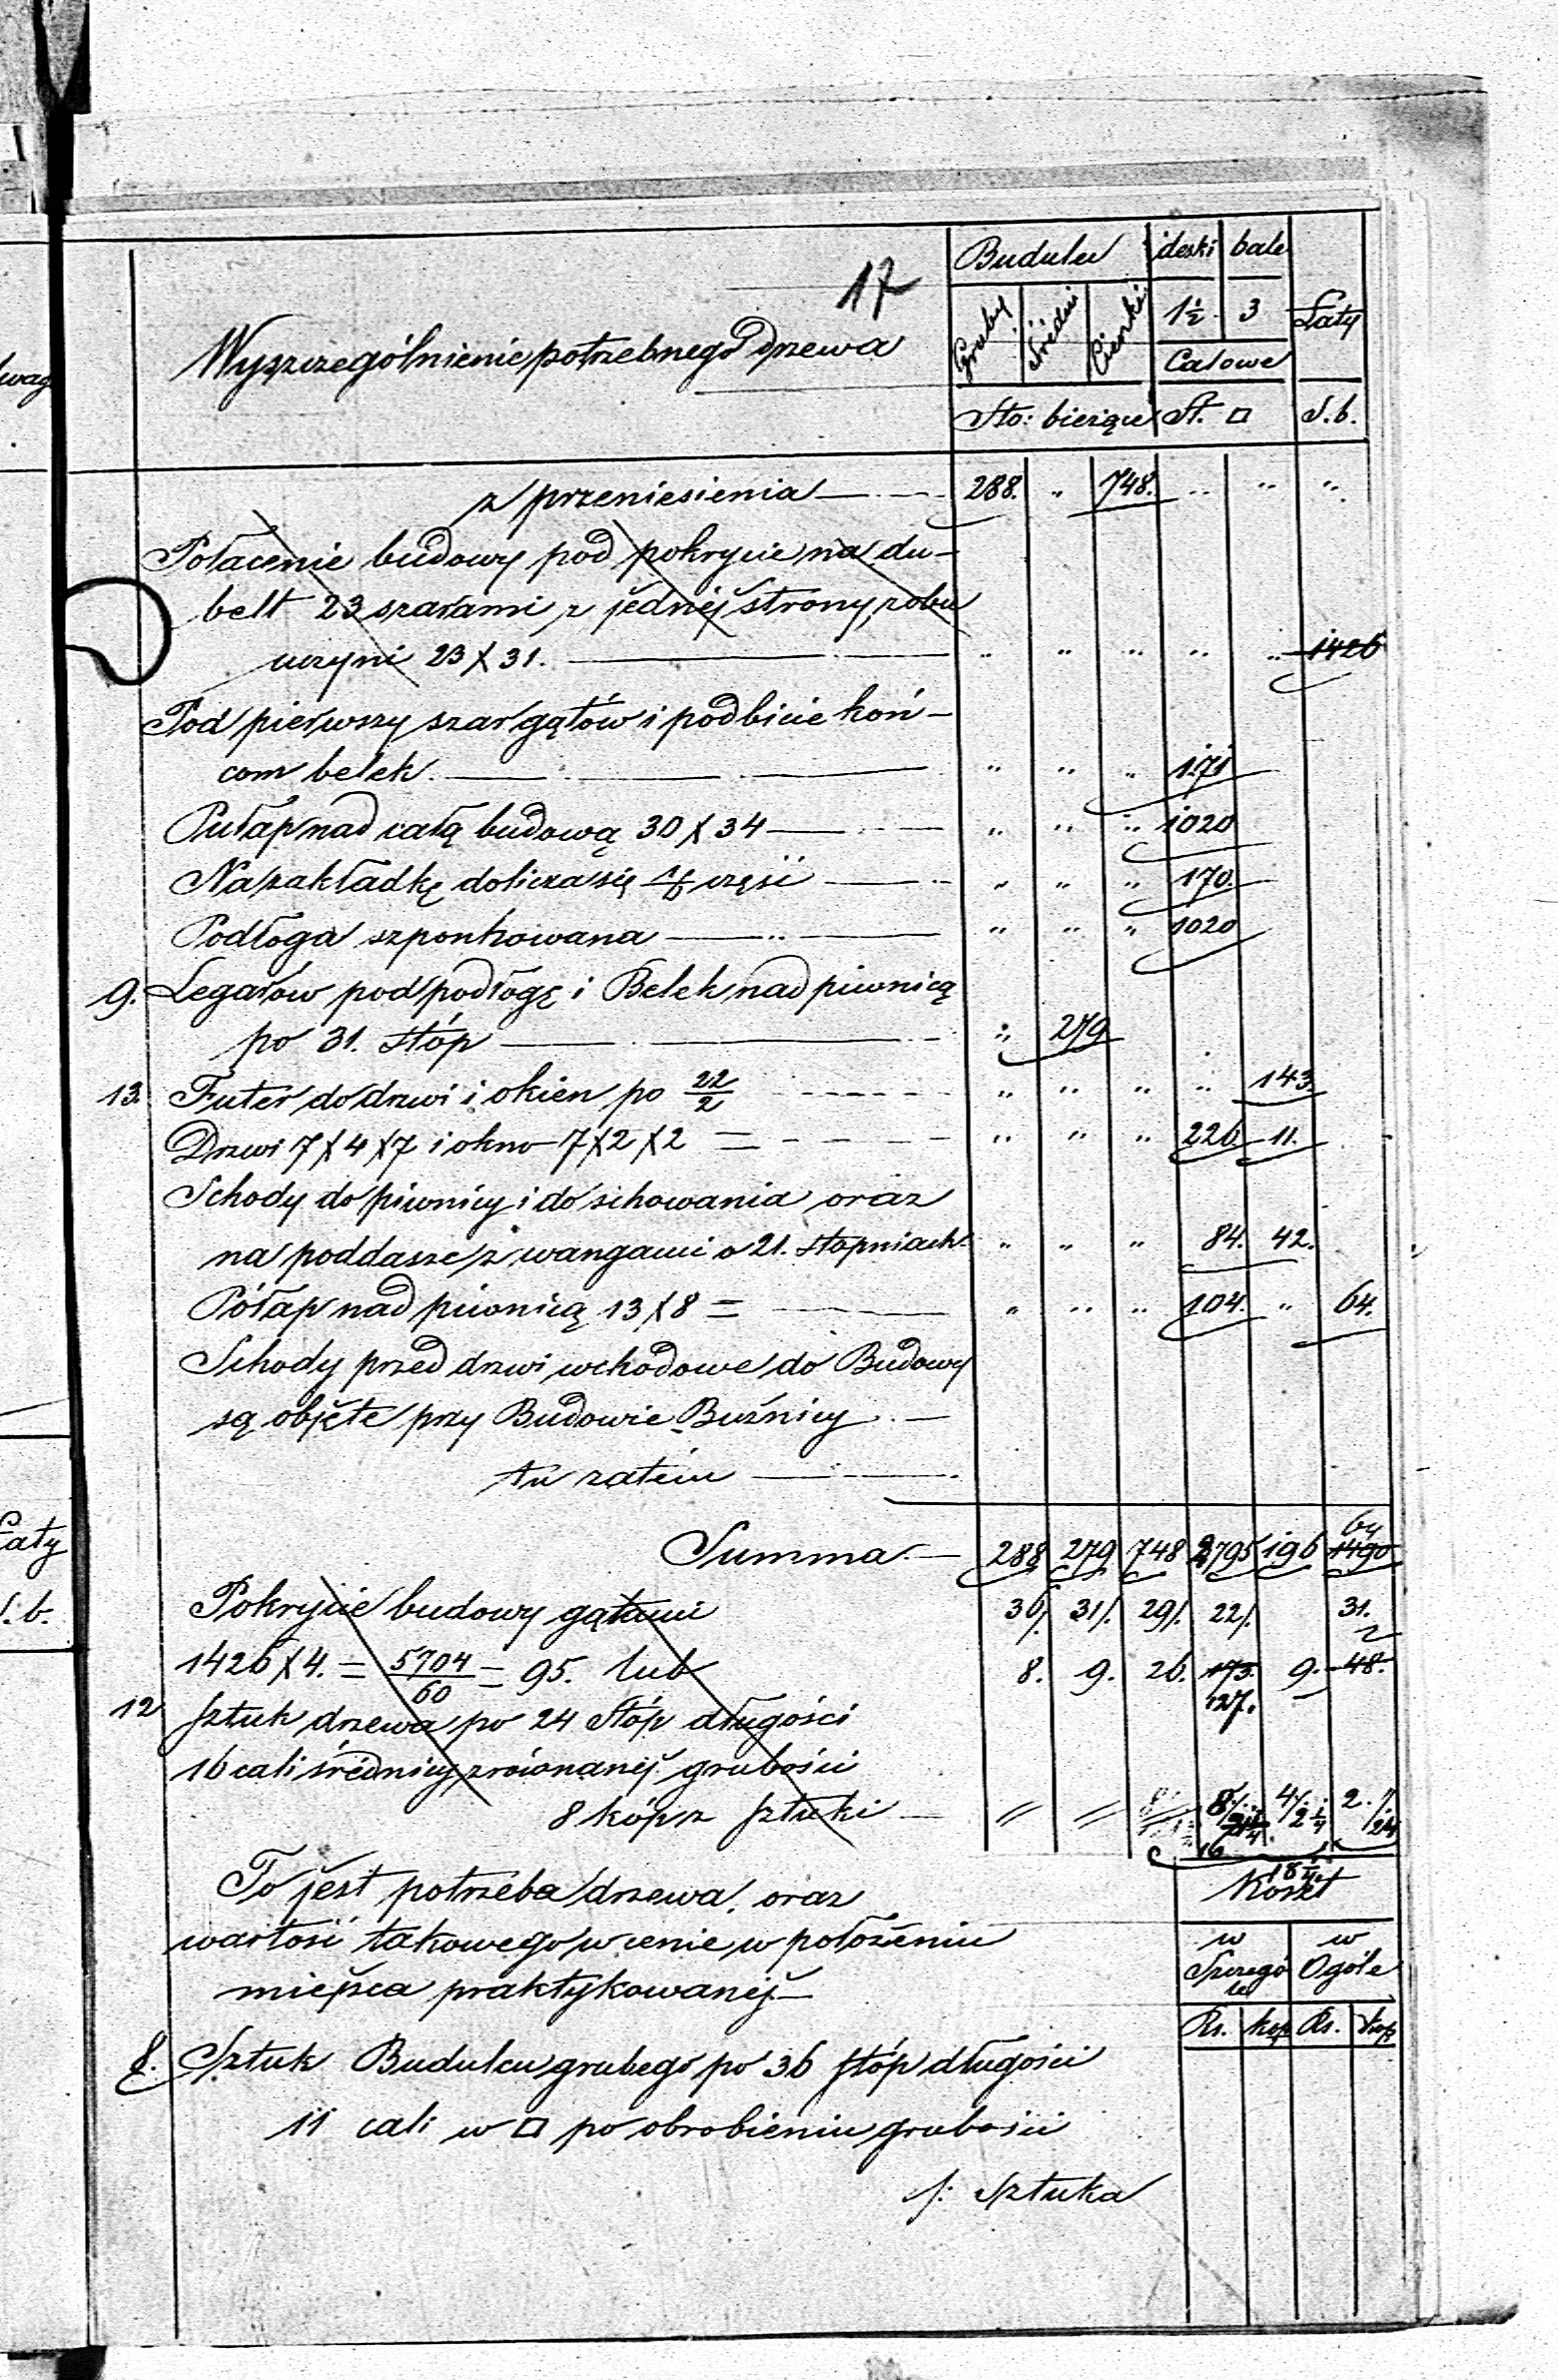 17
Budulcu deski bale
Gruby Średni Cienki 1½ 3 Łaty
Wyszczególnienie potrzebnego drzewa
Calowe
Sto: bieżące St. □ S.b.
z przeniesienia 288. " 748. " " "
Połacenie budowy pod pokrycie na du-
belt 23 szarami, z jednej strony, z obu
uczyni 23 X 31. " " " " " 1426
Pod pierwszy szar gątów i podbicie koń-
com belek. " " " 171
Pułap nad całą budową 30 X 34 " " " 1020
Na zakładkę dolicza się 1/6 części " " " 170.
Podłoga szponkowana " " " 1020
9. Legarów pod podłogę i Belek nad piwnicą
po 31. stóp " 279
13. Futer do drzwi i okien po 22/2 " " " " 143
Drzwi 7 X 4 X 7 i okno 7 X 2 X 2 = " " " 226. 11.
Schody do piwnicy i do schowania oraz
na poddasze z wangami o 21. stopniach. " " " 84. 42.
Półap nad piwnicą 13 X 8 = " " " 104. " 64.
Schody przed drzwi wchodowe do Budowy
są objęte przy Budowie Buźnicy
tu zatem
64
Summa. 288 279 748 2795 196 1490
Pokrycie budowy gątami 36/. 31/. 29/. 22/. 31.
1426 X 4. = 5704/60 = 95. lub 8. 9. 26. 173. 9. 48. 2
127.
12 sztuk drzewa po 24 stóp długości
16 cali średnicy zrównanej grubości
8 kóp z sztuki
To jest potrzeba drzewa, oraz
Koszt
wartość takowego w cenie w położeniu
w w
miejsca praktykowanej
Szczególe Ogóle
Rs. kop Rs. kop
8. Sztuk Budulcu grubego po 36 stóp długości
11 cali w □ po obrobieniu grubości
1: Sztuka
Łaty